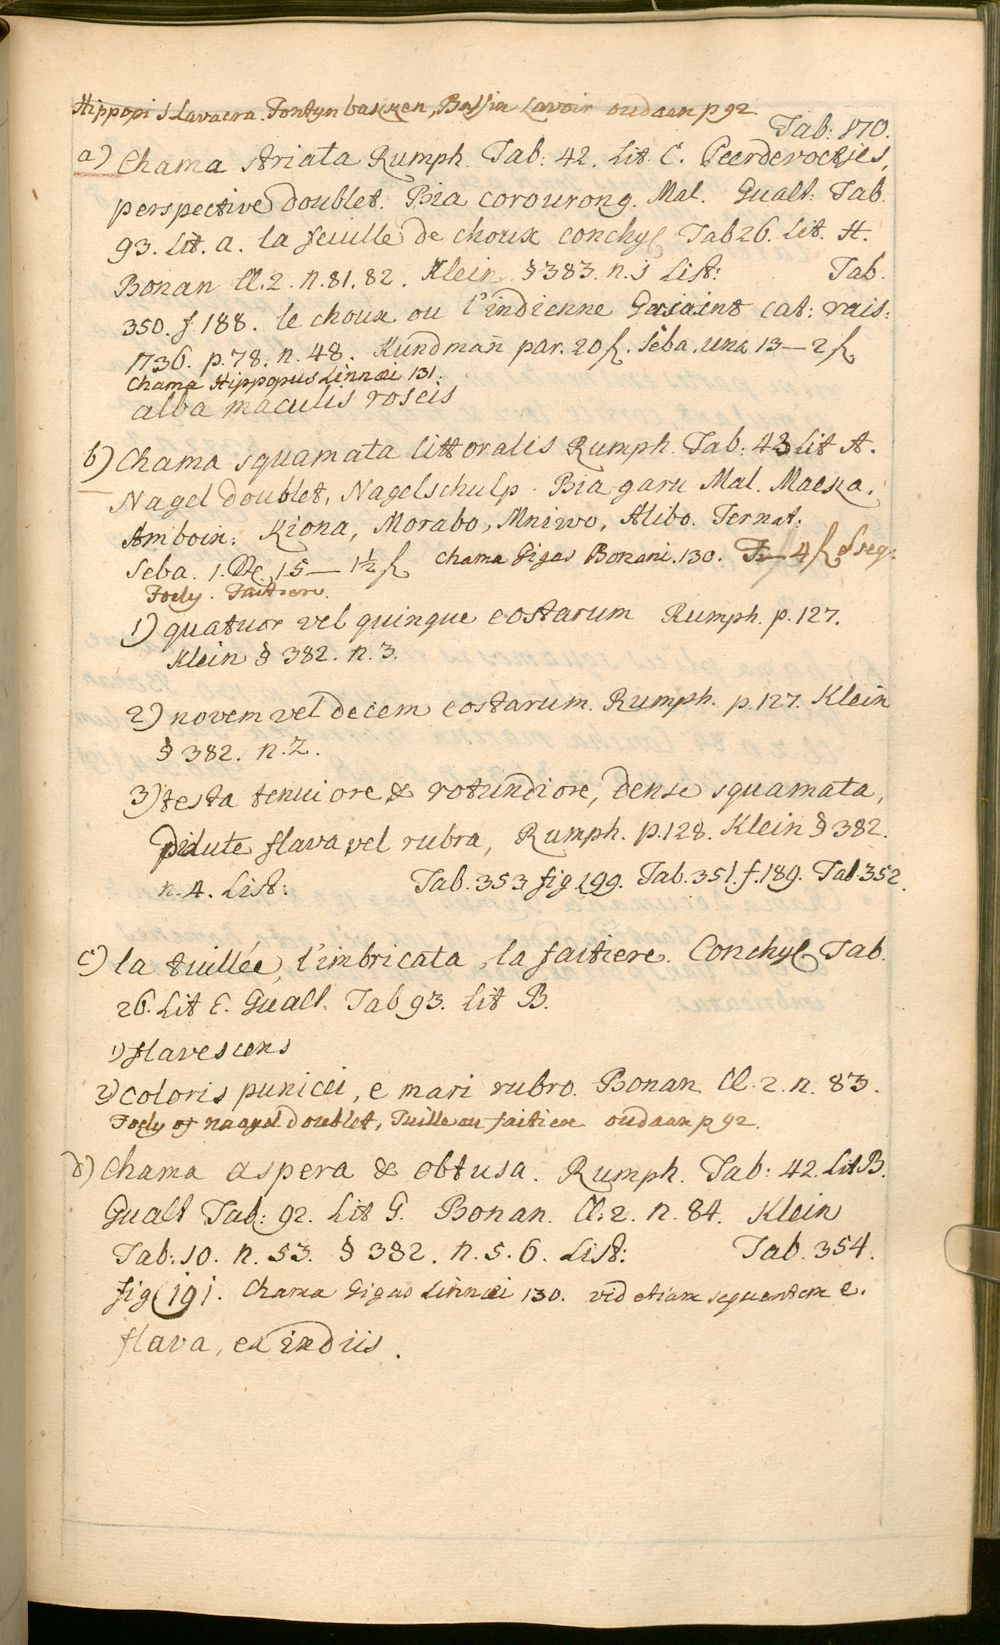 Hippopi s Lavacra. Fontyn bakken, Bassin Lavoir oudaan p 92
Tab: 170.
a) Chama striata Rumph. Tab: 42. Lit. C. Peerdevoetjes,
perspective doublet. Bia corourong. Mal. Gualt: Tab.
93. Lit. a. la feuille de choux conchyl Tab 26. Lit. H.
Bonan Cl. 2. n. 81. 82. Klein §383. n. 1 List: Tab.
350. f. 188. le choux ou l'indienne Gersaint cat: rais:
1736. p. 78. n. 48. Kundman̄ par. 20 f. Seba. una 13—2 f
Chama Hippopus Linnæi 131.
alba maculis roseis
b) Chama squamata littoralis Rumph. Tab: 43 Lit A.
Nagel doublet, Nagelschulp. Bia garu Mal. Maeka.
Amboin: Kiona, Morabo, Mniwo, Alibo. Ternat:
Seba. 15—1½ f Chama Gigas Bonani. 130. 4 f
Foely. Faitiere.
1) quatuor vel quinque costarum Rumph. p. 127.
Klein § 382. n. 3.
2) novem vel decem costarum. Rumph. p. 127. Klein
§ 382. n. 2.
3) testa tenuiore & rotundiore, dense squamata,
dilute flava vel rubra, Rumph. p. 128. Klein § 382.
n. 4. List: Tab. 353 fig 199. Tab. 351. f. 189. Tab 352.
c) la tuillée, l'imbricata, la faitiere. Conchyl Tab.
26. Lit E. Gualt. Tab 93. Lit B.
1) flavescens
2) coloris punicei, e mari rubro. Bonan. Cl. 2. n. 83.
Foely of naagel doublet, Tuille ou faitiere oudaan p 92.
d) Chama aspera & obtusa. Rumph. Tab: 42. Lit B.
Gualt Tab: 92. Lit G. Bonan. Cl: 2. n. 84. Klein
Tab: 10. n. 53. § 382. n. 5. 6. List: Tab. 354.
fig 191. Chama Gigas Linnæi 130. vid etiam sequentem e.
flava, ex indiis.